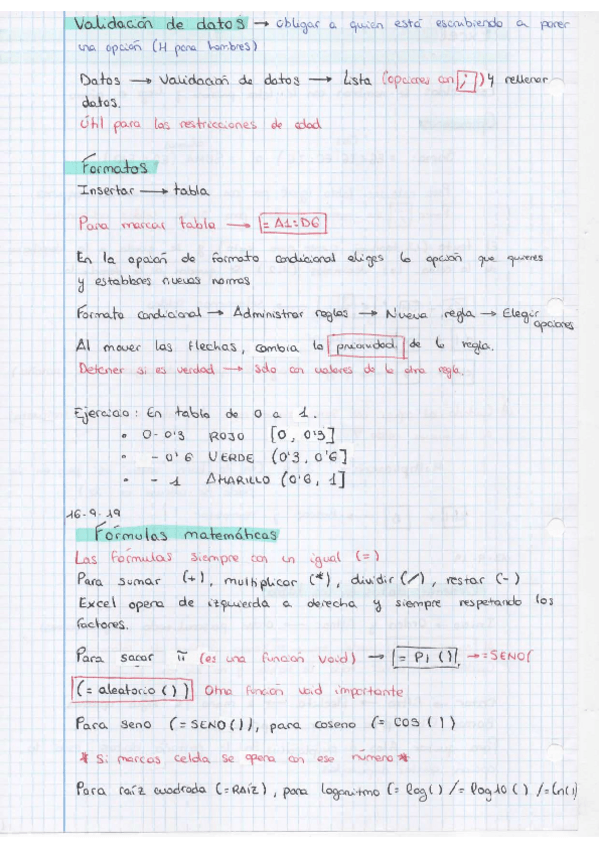 Validación de datos → obligar a quien está escribiendo a poner
una opción (H para hombres)
Datos → Validación de datos → Lista (opciones con ;) y rellenar
datos.
Útil para las restricciones de edad
Formatos
Insertar → tabla
Para marcar tabla → = A1:D6
En la opción de formato condicional eliges la opción que quieres
y estableces nuevas normas
Formato condicional → Administrar reglas → Nueva regla → Elegir
opciones
Al mover las flechas, cambia la prioridad de la regla.
Detener si es verdad → solo con valores de la otra regla.
Ejercicio: En tabla de 0 a 1.
• 0-0'3 ROJO [0, 0'3]
• - 0'6 VERDE (0'3, 0'6]
• - 1 AMARILLO (0'6, 1]
16-9-19
Fórmulas matemáticas
Las fórmulas siempre con un igual (=)
Para sumar (+), multiplicar (*), dividir (/), restar (-)
Excel opera de izquierda a derecha y siempre respetando los
factores.
Para sacar π (es una función void) → = PI () → =SENO(
(= aleatorio ()) Otra función void importante
Para seno (=SENO()), para coseno (= COS ())
* Si marcas celda se opera con ese número *
Para raíz cuadrada (=RAÍZ), para logaritmo (= log() / = log10 () / =ln()